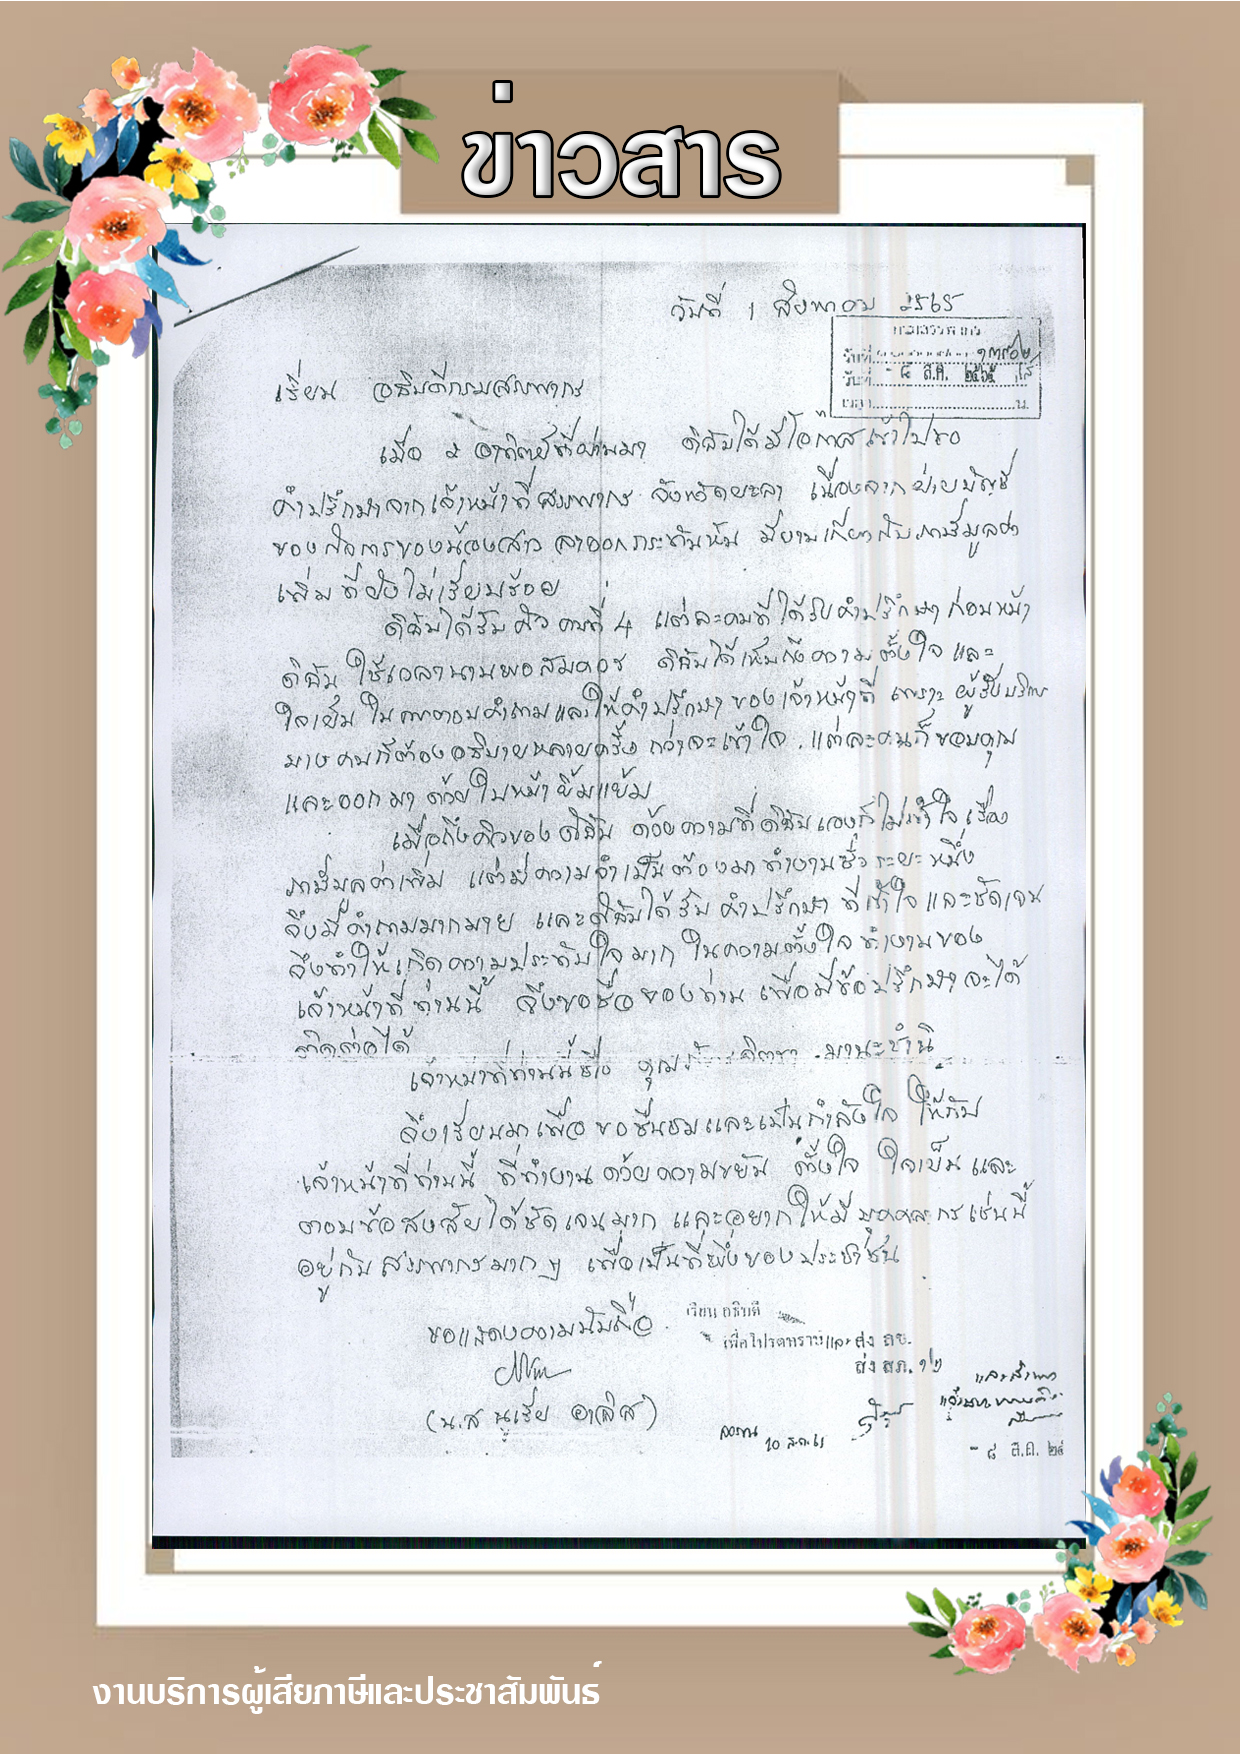 ข่าวสาร
วันที่ 1 สิงหาคม 2565
กรมสรรพากร
วันที่ - ๘ ส.ค. ๒๕๖๕
เวลา น.
เรียน อธิบดีกรมสรรพากร
เมื่อ 2 อาทิตย์ที่ผ่านมา ดิฉันได้มีโอกาสเข้าไปขอ
คำปรึกษาจากเจ้าหน้าที่สรรพากร จังหวัดยะลา เนื่องจากฝ่ายบัญชี
ของกิจการของน้องสาว ลาออกกระทันหัน มีงานเกี่ยวกับภาษีมูลค่า
เพิ่มที่ยังไม่เรียบร้อย
ดิฉันได้รับคิว คนที่ 4 แต่ละคนที่ได้รับคำปรึกษาก่อนหน้า
ดิฉัน ใช้เวลานานพอสมควร ดิฉันได้เห็นถึงความตั้งใจ และ
ใจเย็น ในการตอบคำถามและให้คำปรึกษาของเจ้าหน้าที่ เพราะผู้รับบริการ
บางคนก็ต้องอธิบายหลายครั้ง กว่าจะเข้าใจ แต่ละคนก็ขอบคุณ
และออกมาด้วยใบหน้ายิ้มแย้ม
เมื่อถึงคิวของดิฉัน ด้วยความที่ดิฉันเองก็ไม่เข้าใจเรื่อง
ภาษีมูลค่าเพิ่ม แต่มีความจำเป็นต้องมาทำงานชั่วระยะหนึ่ง
จึงมีคำถามมากมาย และดิฉันได้รับคำปรึกษา ที่เข้าใจและชัดเจน
จึงทำให้เกิดความประทับใจมาก ในความตั้งใจทำงานของ
เจ้าหน้าที่ท่านนี้ จึงขอชื่อของท่าน เพื่อมีข้อปรึกษาจะได้
ติดต่อได้
เจ้าหน้าที่ท่านนี้ชื่อ คุณ มานะชำนิ
จึงเรียนมาเพื่อขอชื่นชมและเป็นกำลังใจ ให้กับ
เจ้าหน้าที่ท่านนี้ ที่ทำงานด้วยความขยัน ตั้งใจ ใจเย็นและ
ตอบข้อสงสัยได้ชัดเจนมาก และอยากให้มีบุคคลากรเช่นนี้
อยู่กับสรรพากรมากๆ เพื่อเป็นที่พึ่งของประชาชน
ขอแสดงความนับถือ
เรียน อธิบดี
เพื่อโปรดทราบและส่ง
ส่ง สภ. ๑๒
(น.ส นูเรีย
10 ส.ค. 65
- ๘ ส.ค. ๒๕
งานบริการผู้เสียภาษีและประชาสัมพันธ์